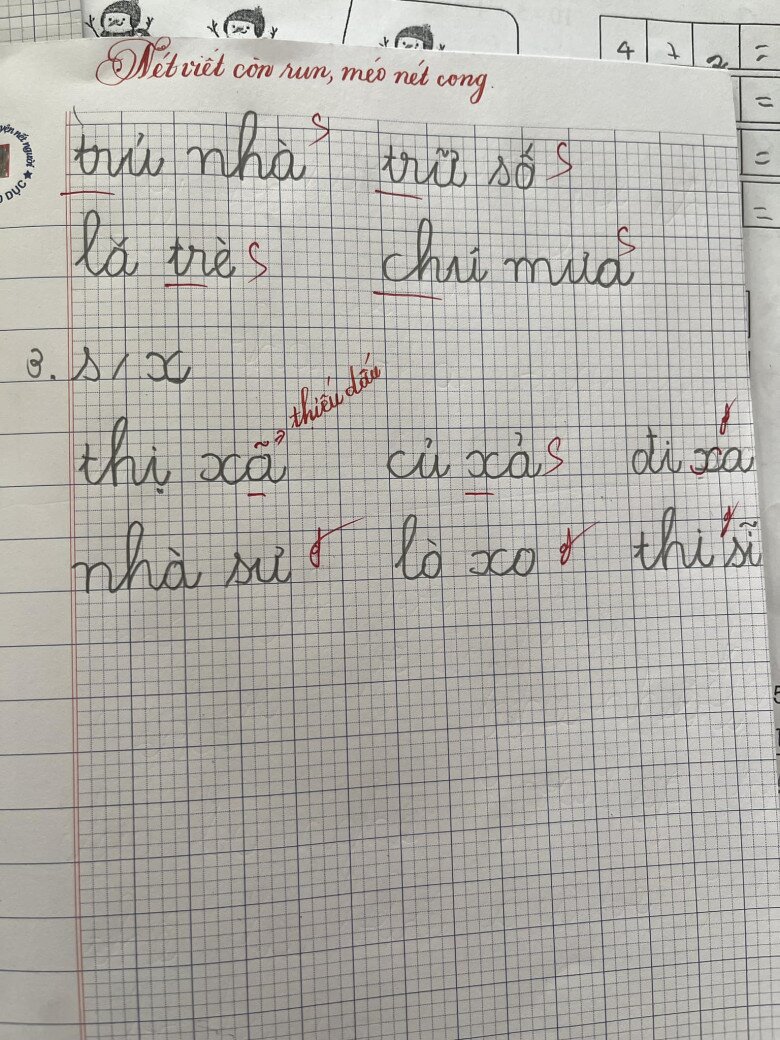 4 7 2 =
=
=
=
Nét viết còn run, méo nét cong.
trú nhà s trữ số s
lá trè s chú mưa s
3. s / x
thị xã thiếu dấu củ xả s đi xa đ
nhà sư đ lò xo đ thi sĩ đ